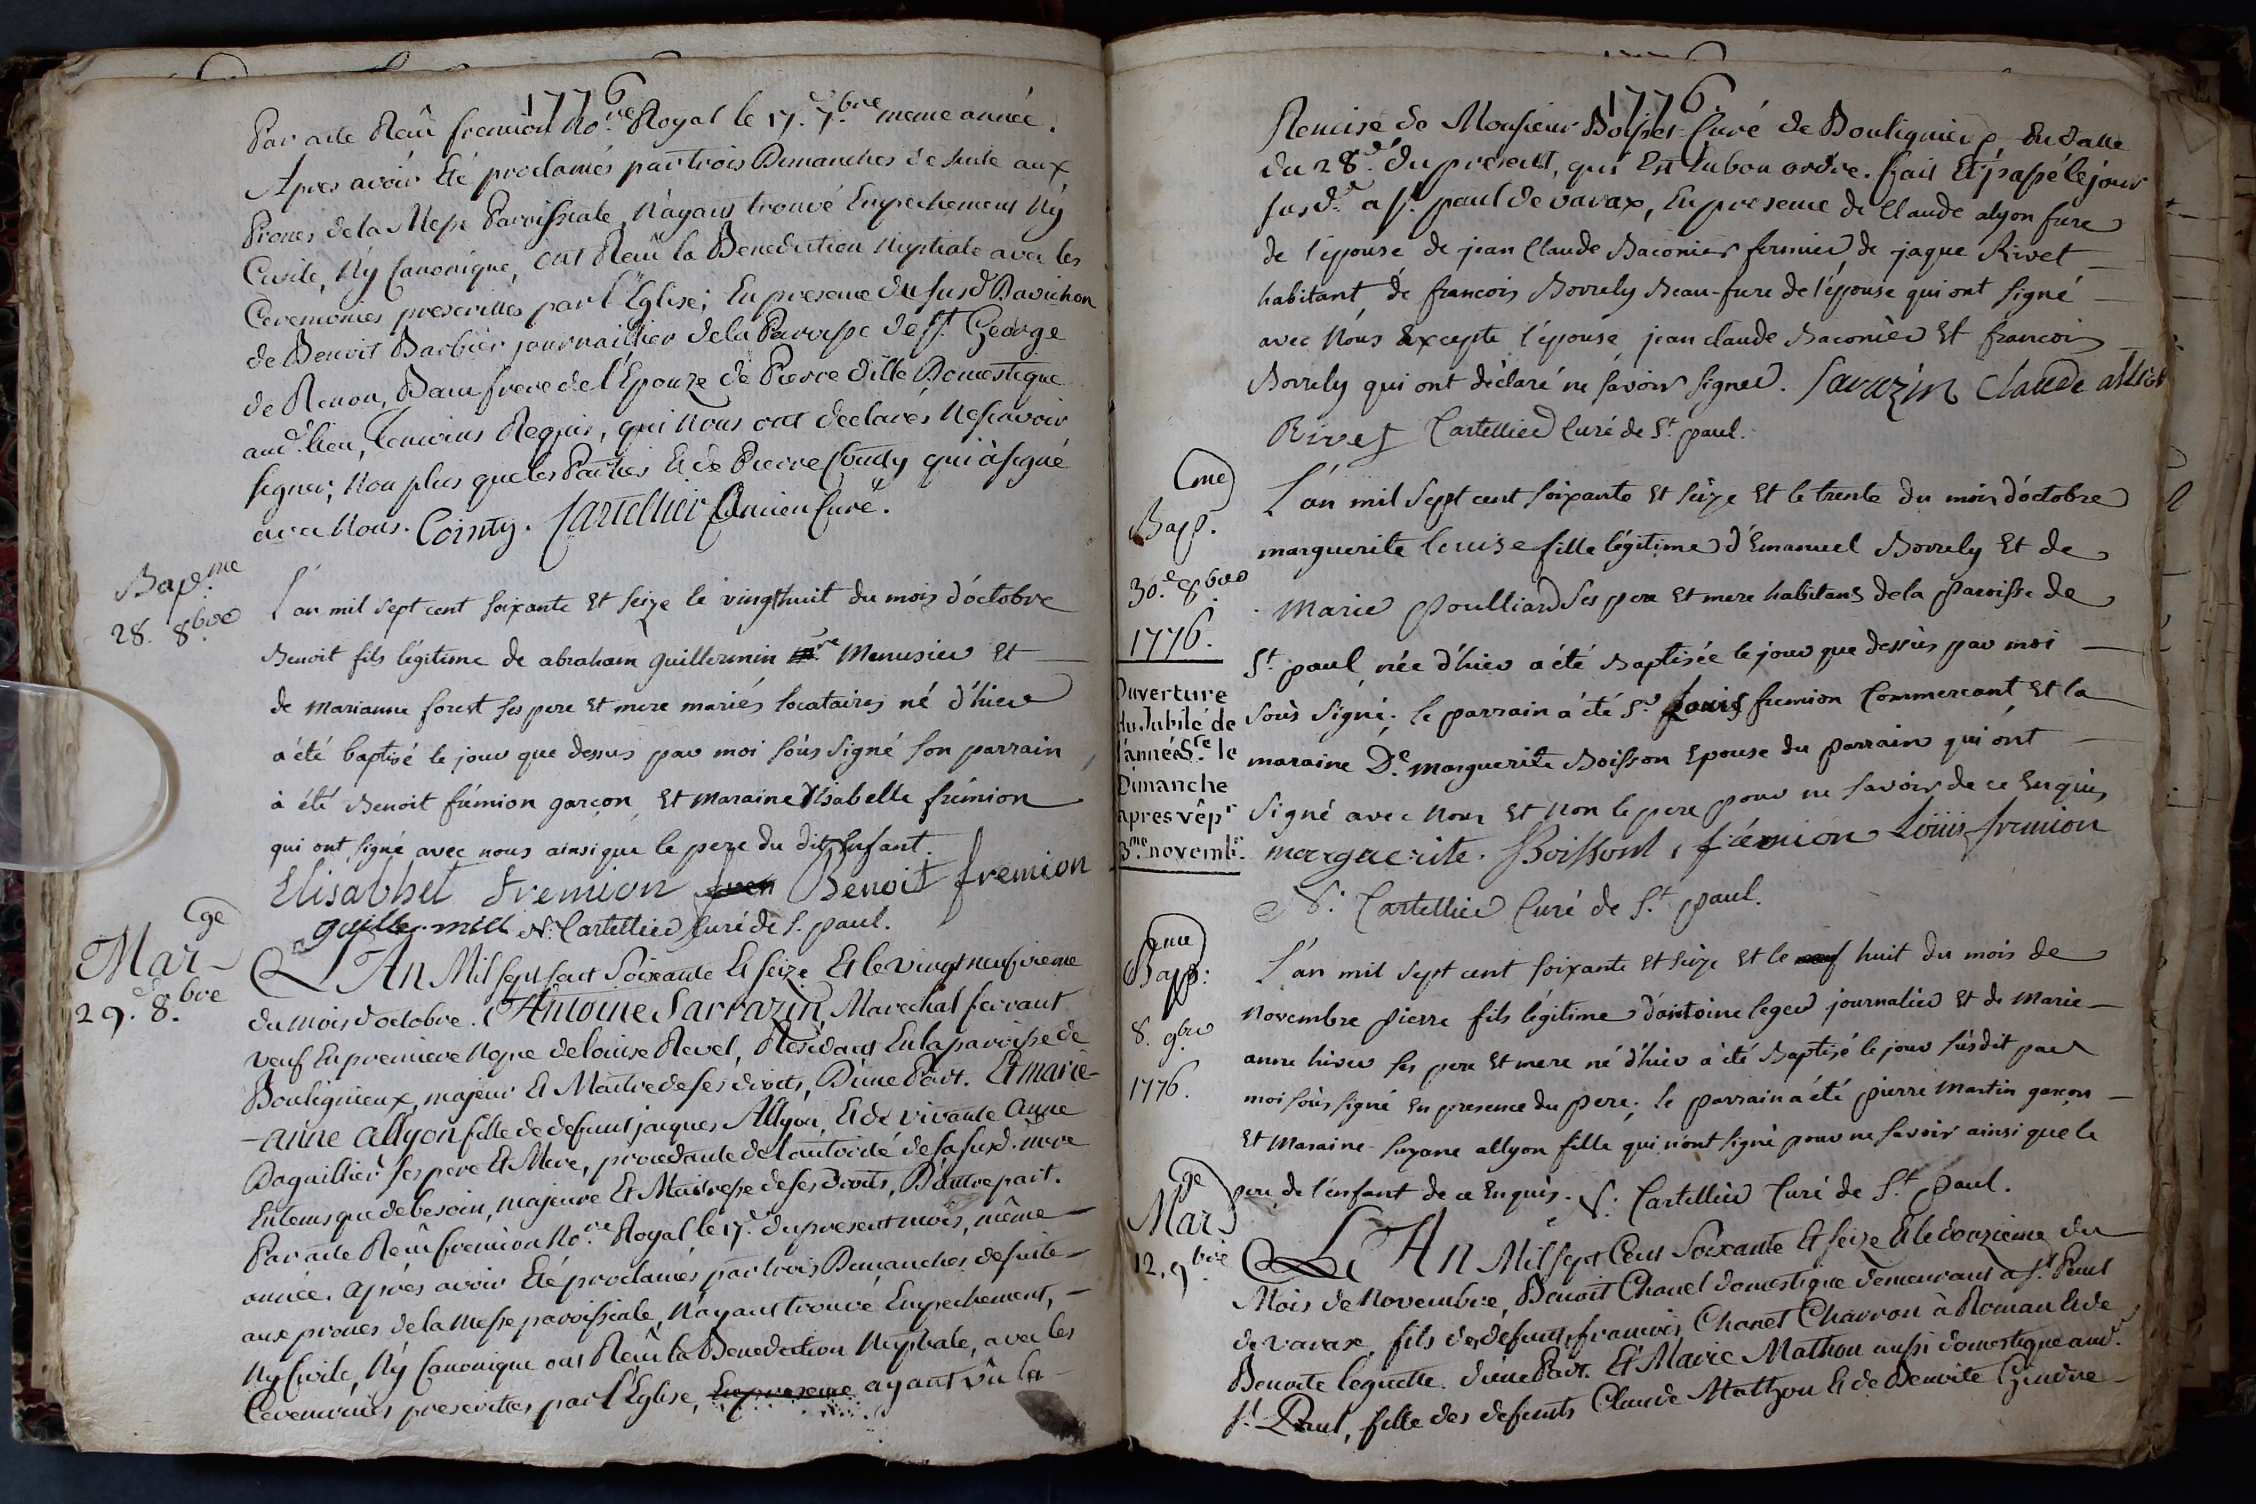 1776
Par acte Reçû fremion No.re Royal le 17.e 7.bre meme année.
Apres avoir Eté proclamés par trois Dimanches de suite aux
Prones de la Messe Paroissiale, N'ayant trouvé Empechement Ny
Civile, Ny Canonique, ont Reçû la Benediction Nuptiale avec les
Ceremonies prescrittes par l'Eglise; En presence du susd. Bavichon
de Benoit Barbier journaillier de la Paroisse de St. George
de Renon, Beau frere de l'Epouze de Pierre dille Domestique
aud. lieu, Temoins Requis, qui Nous ont declarés Ne scavoir
signer, Non plus que les Parties Et de Pierre Cointy qui à signé
avec Nous. Cointy. Cartellier Ancien Curé.
Bap.me
28. 8.bre
L'an mil sept cent soixante Et seize le vingt huit du mois d'octobre
Benoit fils légitime de abraham guillermin Menusier Et
de Marianne forest ses pere Et mere mariés locataires né d'hier
a été baptisé le jour que dessus par moi sous signé son parrain
à été Benoit frémion garçon, Et maraine Ysabelle frémion
qui ont signé avec nous ainsi que le pere du dit Enfant.
Elisabhet fremion Benoit fremion
guillermin N. Cartellier Curé de St. paul.
Mar-ge
29.e 8.bre
L'An Mil sept cent Soixante Et seize Et le vingt neufvieme
du mois d'octobre. Antoine Sarrazin, Marechal ferrant
veuf En premiere Nopce de louise Revel, Residant En la paroisse de
Bouligneux, majeur Et Maitre de ses droits, D'une Part. Et marie-
-anne allyon fille de defunt jacques Allyon, Et de vivante anne
Baguillier ses pere Et Mere, procedante de l'autorité de sa susd. mere
En tems que de besoin, majeure Et Maitresse de ses Droits, D'autre part.
Par acte Reçû fremion No.re Royal le 17.e du present mois, même
année. apres avoir Eté proclamés par trois Dimanches de suite
aux prones de la Messe paroissiale, N'ayant trouvé Empechement,
Ny Civile, Ny Canonique ont Reçû la Benediction Nuptiale, avec les
Ceremonies prescrittes par l'Eglise, En presence ayant vû la
1776
Remise de Monsieur Curé de Bouligneux, En datte
du 28.e du present, qui Est En bon ordre. fait Et passé le jour
susd. a St. paul de varax, En presence de Claude alyon frere
de l'épouse de jean Claude Baconier fermier de jaque Rivet
habitant de francois Borrely Beau-frere de l'épouse qui ont signé
avec Nous Excepte l'épouse jean claude Baconier Et francois
Borrely qui ont déclaré ne savoir signer. Sarazin Claude allion
Rivet Cartellier Curé de St. paul.
Bapp.me
30.e 8.bre
1776.
L'an mil sept cent soixante et seize Et le trente du mois d'octobre
marguerite louise fille légitime d'Emanuel Borrely Et de
Marie poulliard ses pere Et mere habitans de la paroisse de
St. paul née d'hier a été Baptisée le jour que dessus par moi
sous signé; le parrain a été Sr. Louis fremion Commercant Et la
maraine De. marguerite Boisson Epouse du parrain qui ont
signé avec nous Et non le pere pour ne savoir de ce Enquis
marguerite. Boissont, frémion Loüis fremion
N. Cartellier Curé de St. paul.
Ouverture
du Jubilé de
l'année Ste. le
Dimanche
apres vêp.
3.me novemb.
Bapp.me
8. 9.bre
1776.
L'an mil sept cent soixante Et seize Et le neuf huit du mois de
Novembre pierre fils légitime d'antoine leger journalier Et de Marie
anne hiver ses pere Et mere né d'hier a été Baptisé le jour susdit par
moi sous signé En presence du pere; le parrain a été pierre Martin garçon
Et Maraine suzane allyon fille qui n'ont signé pour ne savoir ainsi que le
pere de l'enfant de ce Enquis. N. Cartellier Curé de St. paul.
Mar.ge
12. 9.bre
L'An Mil sept Cent Soixante Et seize Et le douzieme du
Mois de Novembre, Benoit Chanel domestique demeurant a St. Paul
de varax, fils des defunts francois Chanel Charron à Roman Et de
Benoite leguette. d'une Part. Et Marie Mathon aussi domestique aud.
St. Paul, fille des defunts Claude Mathon Et de Benoite Gendre